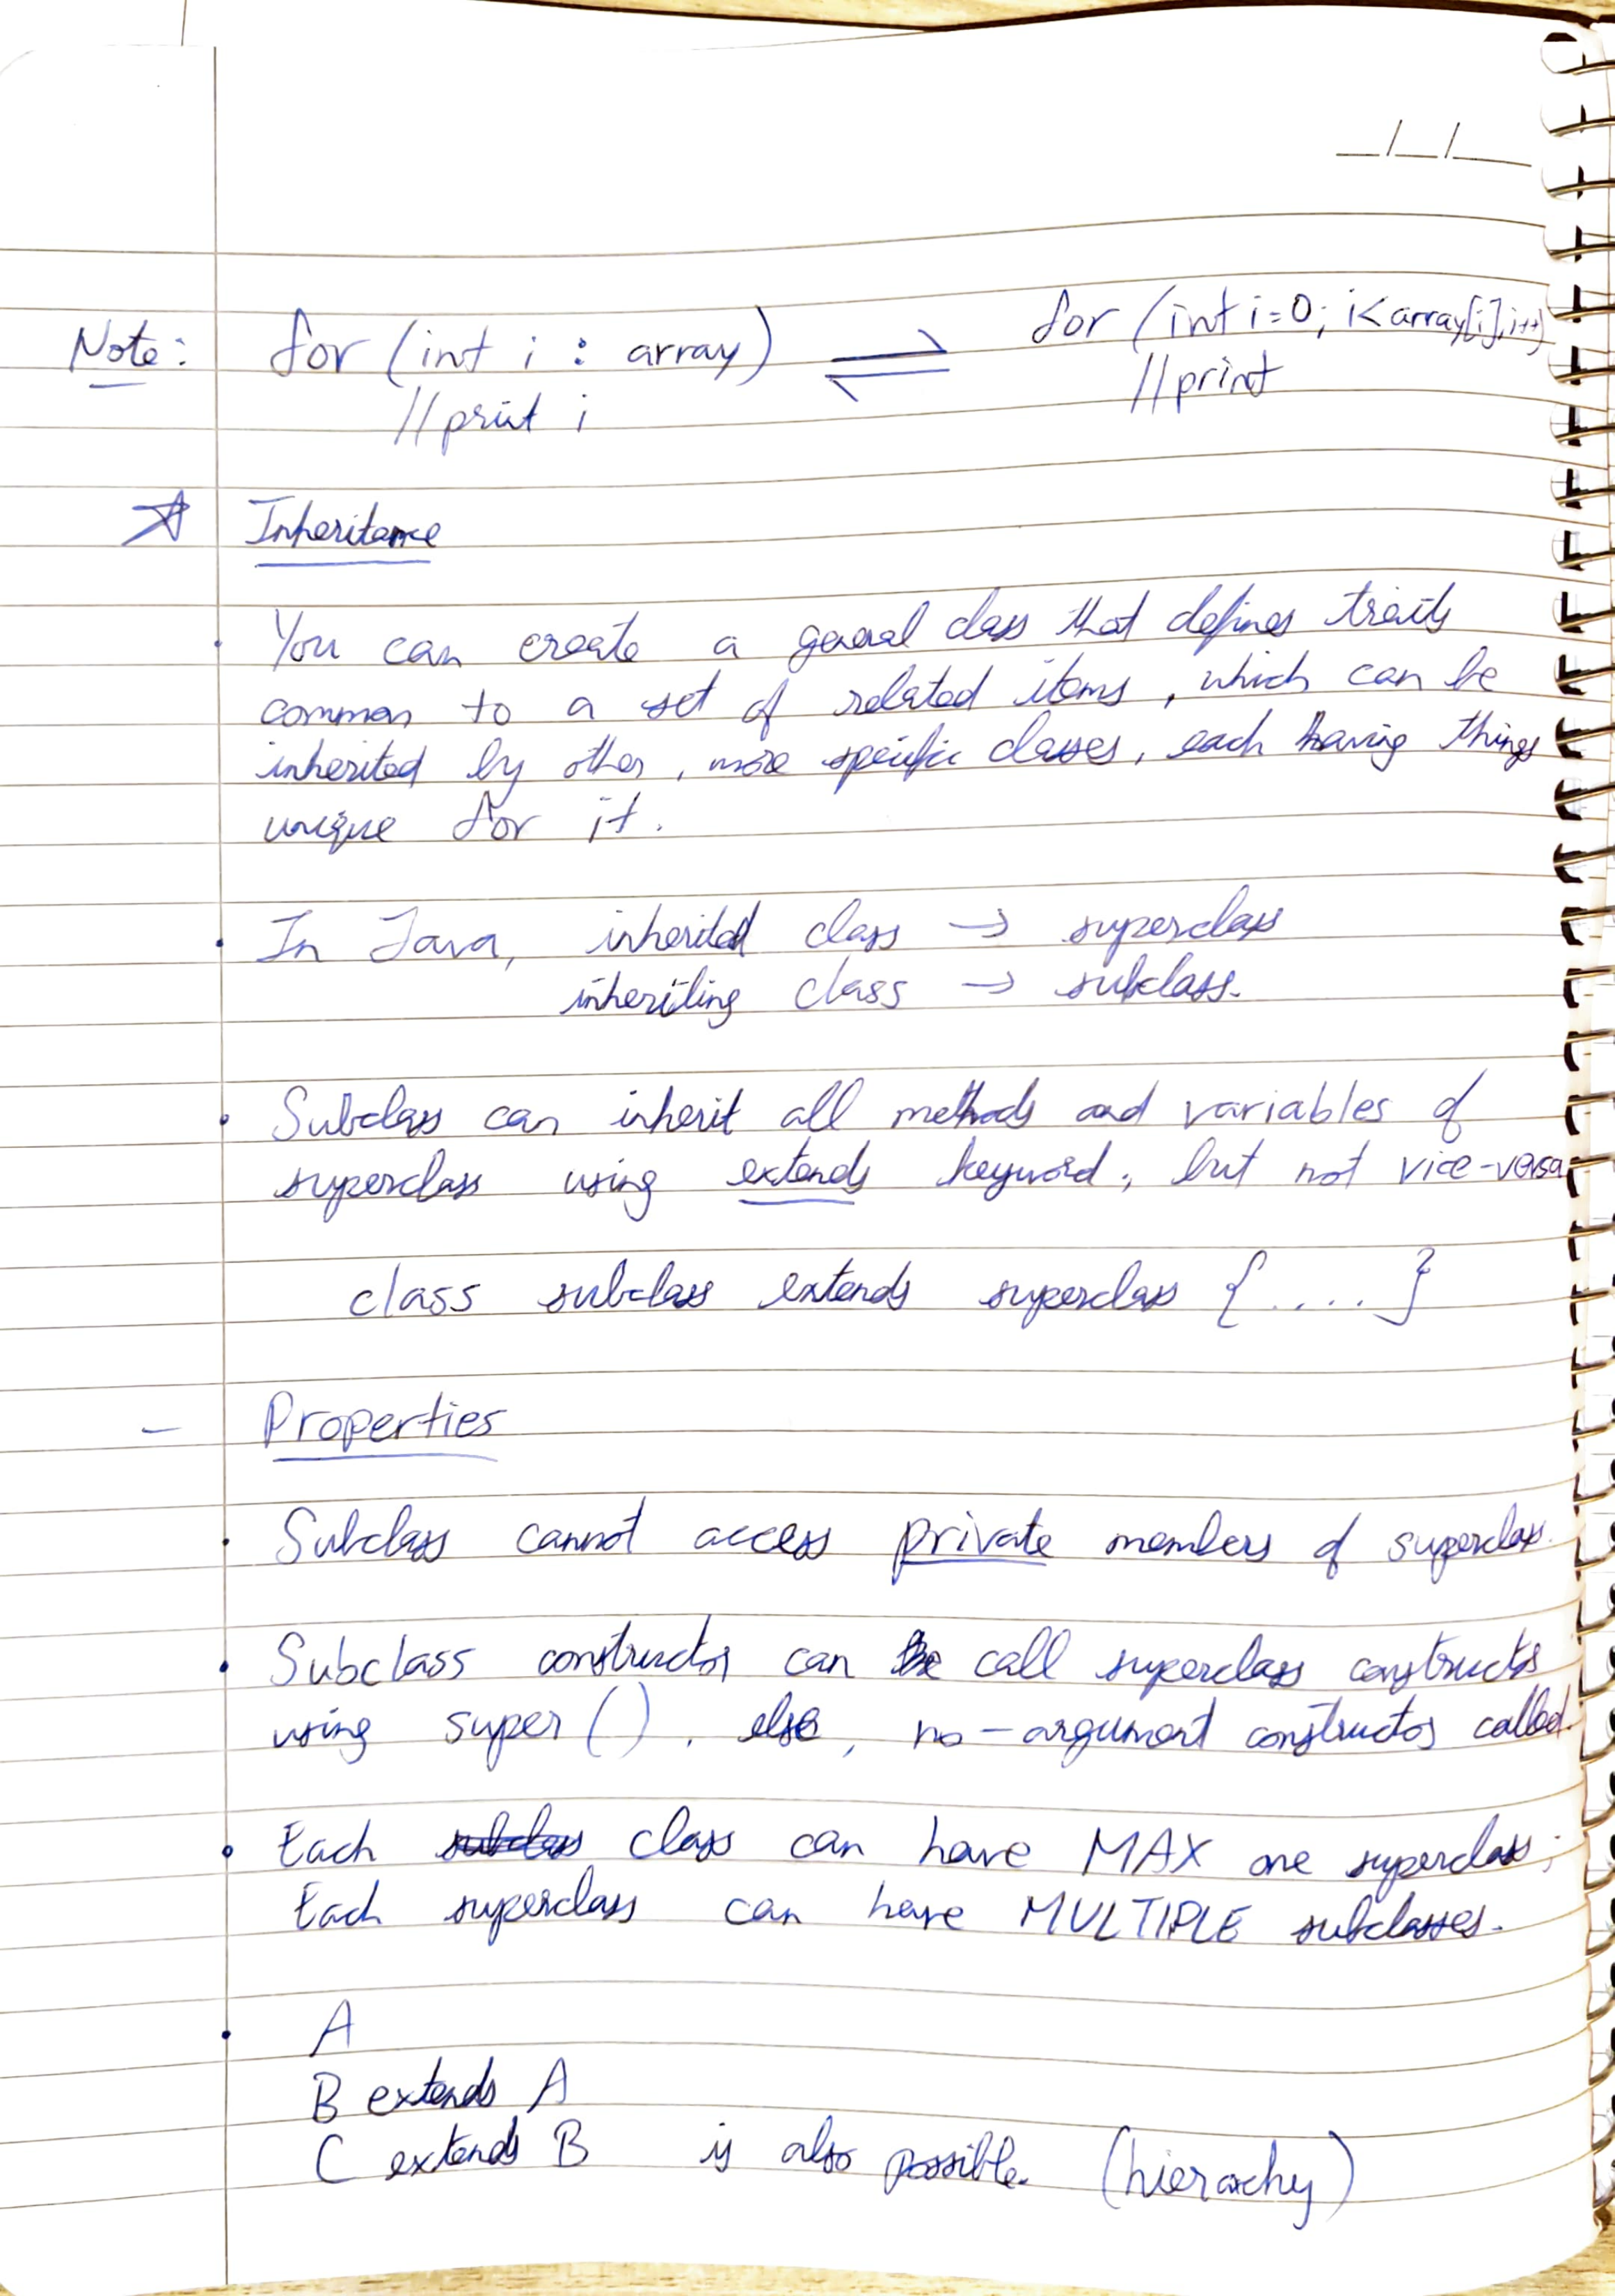 Note: for (int i : array) ⇌ for (int i=0; i<array[i], i++)
//print i //print
☆ Inheritance
• You can create a general class that defines traits
common to a set of related items, which can be
inherited by other, more specific classes, each having things
unique for it.
• In Java, inherited class → superclass
inheriting class → subclass.
• Subclass can inherit all methods and variables of
superclass using extends keyword, but not vice-versa
class subclass extends superclass {....}
– Properties
• Subclass cannot access private members of superclass.
• Subclass constructor can call superclass constructor
using super(). else, no-argument constructor called.
• Each class can have MAX one superclass;
Each superclass can have MULTIPLE subclasses.
• A
B extends A
C extends B is also possible. (hierarchy)